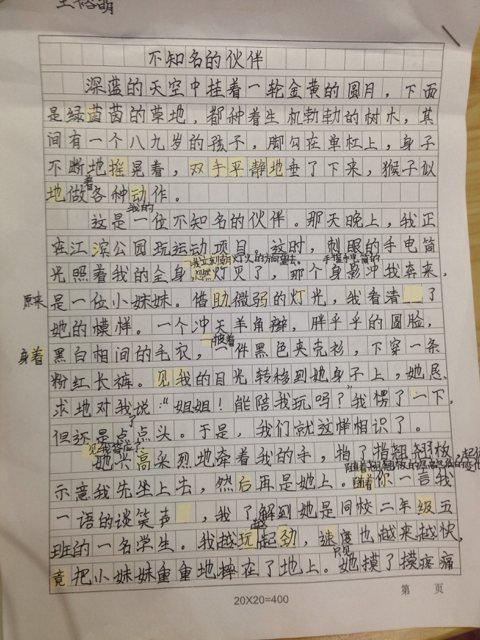 不知名的伙伴
深蓝的天空中挂着一轮金黄的圆月，下面
是绿茵茵的草地，都种着生机勃勃的树木，其
间有一个八九岁的孩子，脚勾在单杠上，身子
不断地摇晃着，双手平静地垂了下来，猴子似
地做着各种动作。
这是我的一位不知名的伙伴。那天晚上，我正
在江滨公园玩运动项目。这时，刺眼的手电筒
光照着我的全身，灯灭了，那个身影冲我奔来，
原来是一位小妹妹。借助微弱的灯光，我看清了
她的模样。一个冲天羊角辫，胖乎乎的圆脸，
身着黑白相间的毛衣，披着一件黑色夹克衫，下穿一条
粉红长裤。见我的目光转移到她身子上，她恳
求地对我说：“姐姐！能陪我玩吗？”我愣了一下，
但还是点点头。于是，我们就这样相识了。
她兴高采烈地牵着我的手，指了指翘翘板
示意我先坐上去，然后再是她上。随着你一言我
一语的谈笑声，我了解到她是同校二年级五
班的一名学生。我越玩越起劲，速度也越来越快，
竟把小妹妹重重地摔在了地上。只见她摸了摸疼痛
20X20=400
第 页